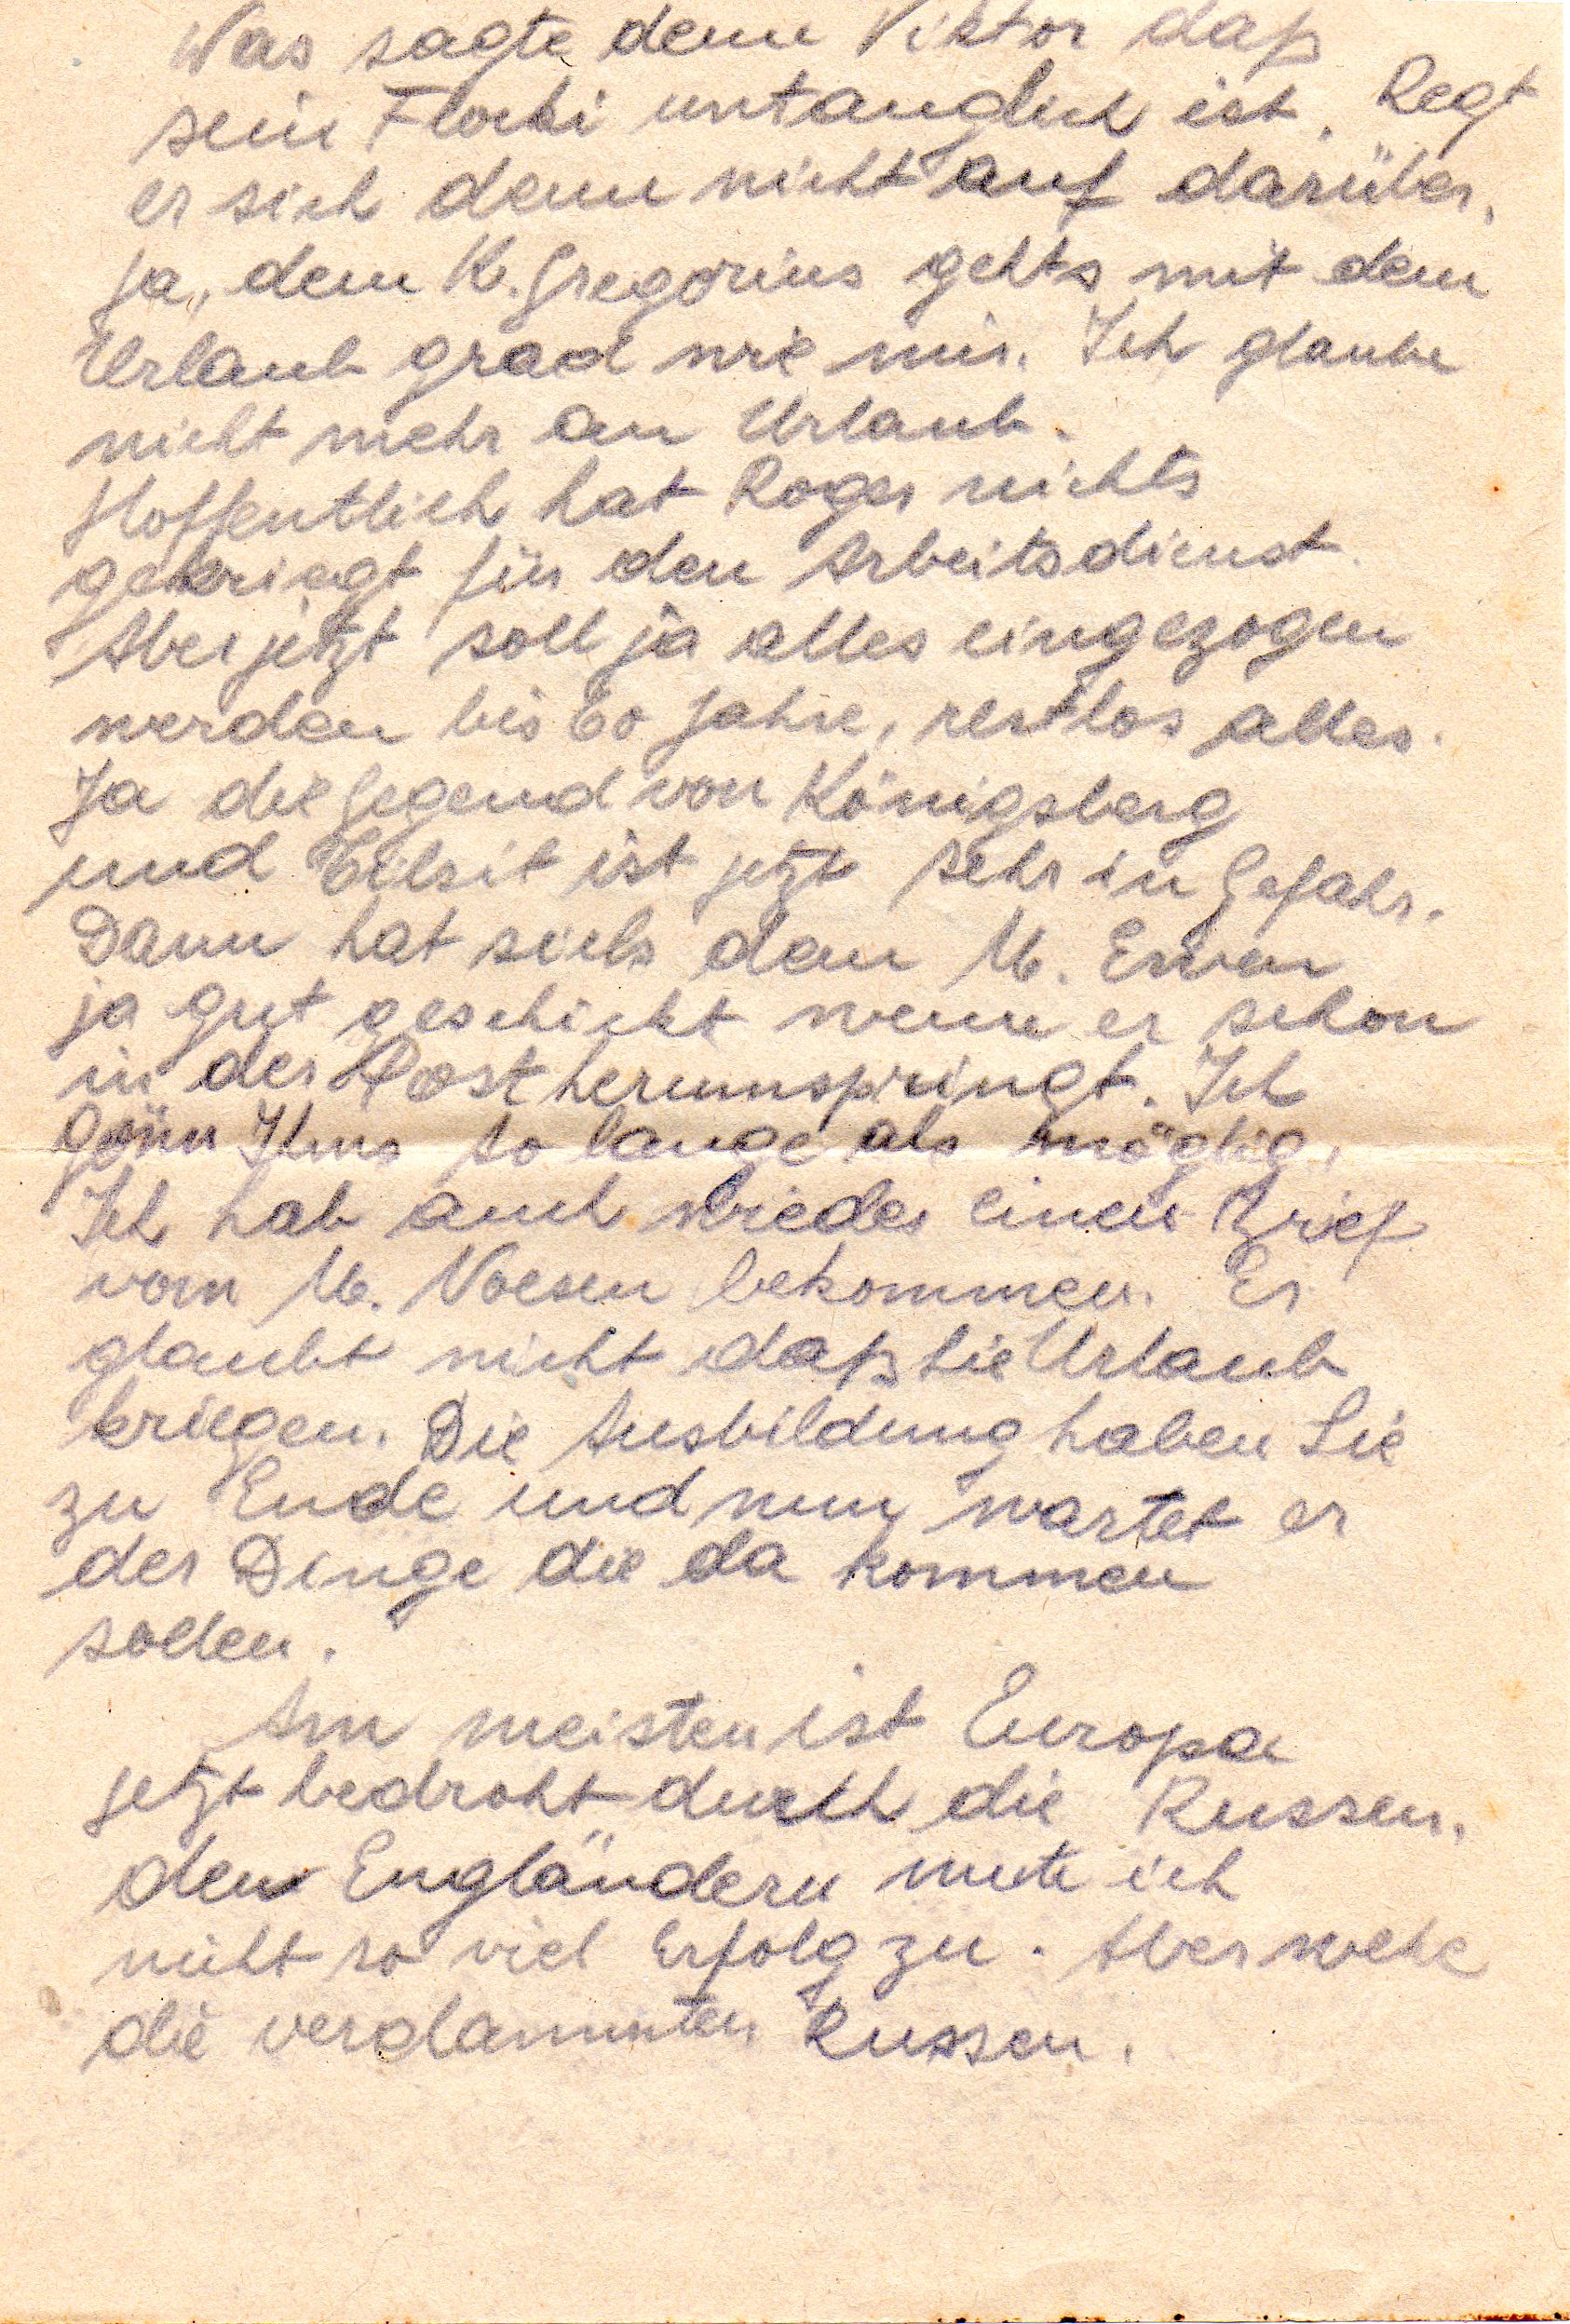 Was sagte denn Viktor daß
sein Flocki untauglich ist. Regt
er sich denn nicht auf darüber.
Ja, dem K. Gregorius gehts mit dem
Urlaub grad wie mir. Ich glaube
nicht mehr an Urlaub.
Hoffentlich hat Roger nichts
gekriegt für den Arbeitsdienst.
Aber jetzt soll ja alles eingezogen
werden bis 60 Jahre, restlos alles.
Ja die Gegend von Königsberg
und Tilsit ist jetzt sehr in Gefahr.
Dann hat sichs dem M. Erwen
ja gut geschickt wenn er schon
in der Post herumspringt. Ich
gönn Ihms so lange als möglig.
Ich hab auch wieder einen Brief
vom M. Noesen bekommen. Er
glaubt nicht daß Sie Urlaub
kriegen. Die Ausbildung haben Sie
zu Ende und nun wartet er
der Dinge die da kommen
sollen.
Am meisten ist Europa
jetzt bedroht durch die Russen.
den Engländern mute ich
nicht so viel Erfolg zu. Aber wehe
die verdammten Russen.